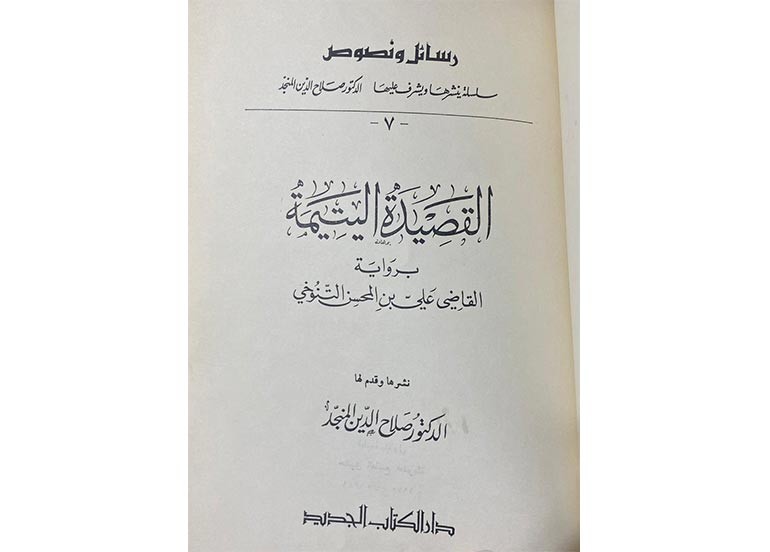 رسائل ونصوص
سلسلة ينشرها ويشرف عليها الدكتور صلاح الدين المنجد
- ٧ -
القصيدة اليتيمة
برواية
القاضي علي بن المحسن التنوخي
نشرها وقدم لها
الدكتور صلاح الدين المنجد
دار الكتاب الجديد